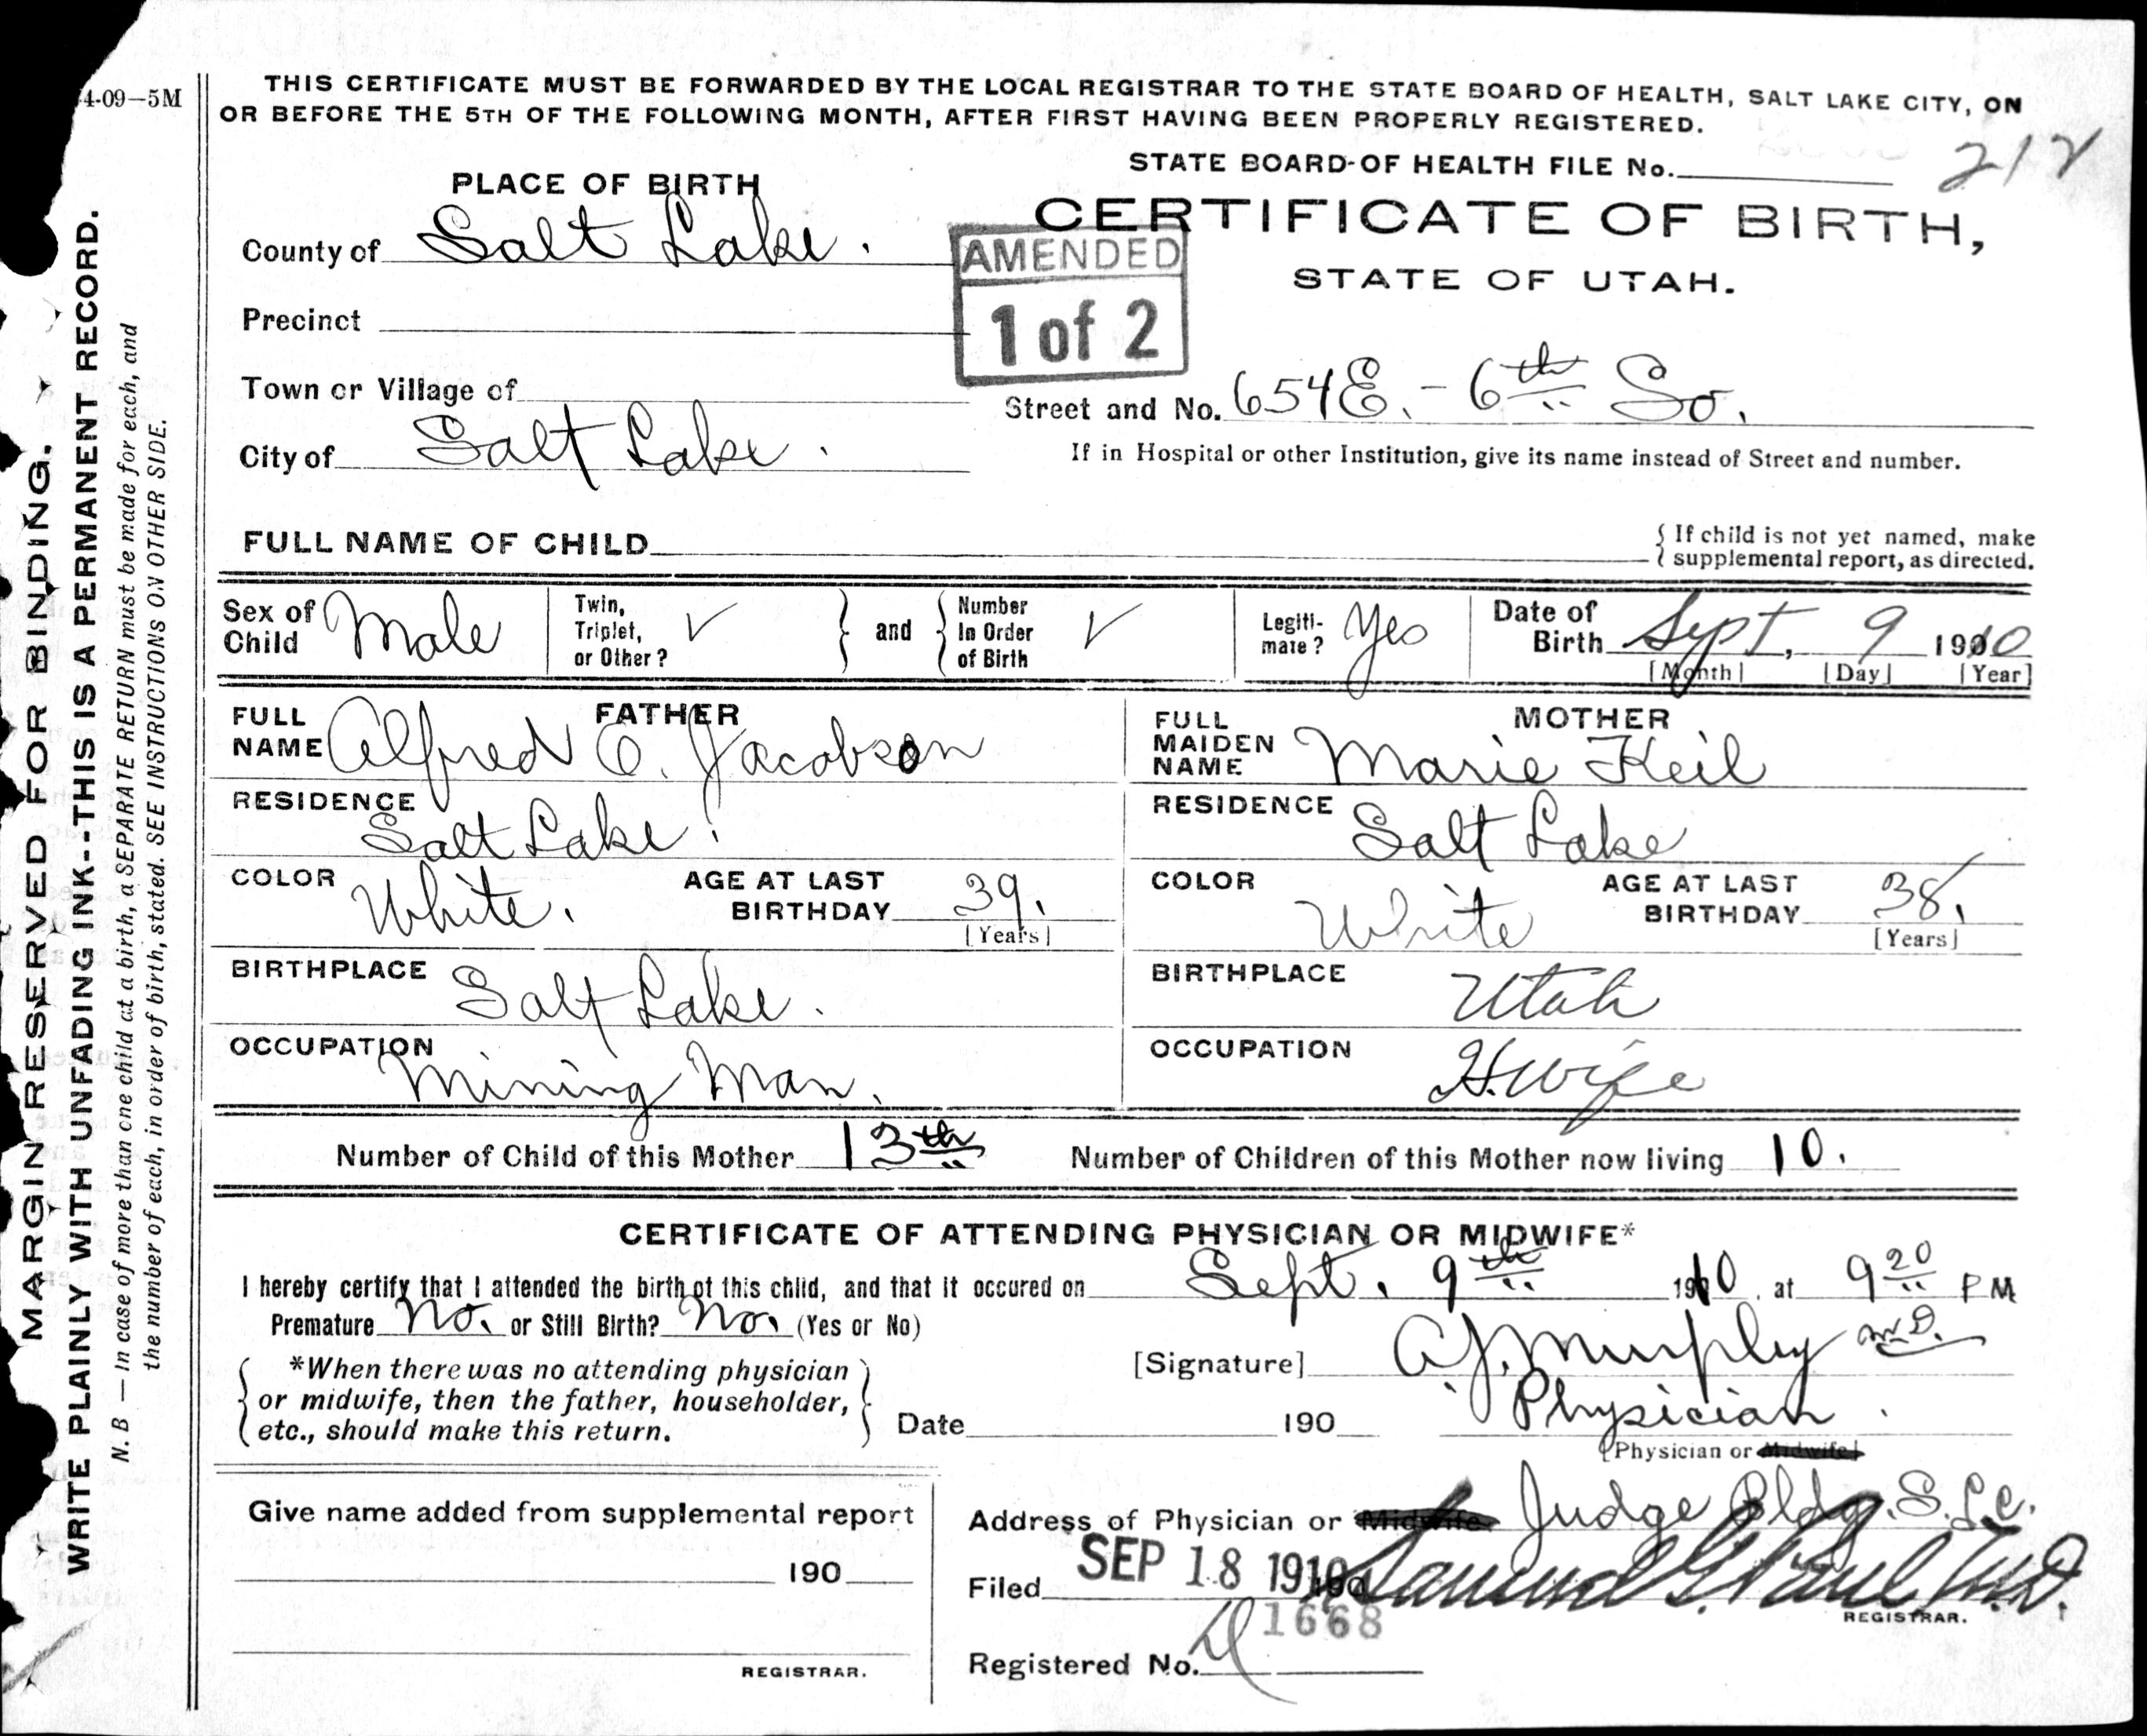 4-09—5M
THIS CERTIFICATE MUST BE FORWARDED BY THE LOCAL REGISTRAR TO THE STATE BOARD OF HEALTH, SALT LAKE CITY, ON
OR BEFORE THE 5TH OF THE FOLLOWING MONTH, AFTER FIRST HAVING BEEN PROPERLY REGISTERED.
STATE BOARD OF HEALTH FILE No. 212
PLACE OF BIRTH
CERTIFICATE OF BIRTH,
STATE OF UTAH.
AMENDED
1 of 2
County of Salt Lake.
Precinct
Town or Village of
Street and No. 654 E. - 6th So.
City of Salt Lake.
If in Hospital or other Institution, give its name instead of Street and number.
FULL NAME OF CHILD
{ If child is not yet named, make
supplemental report, as directed.
Sex of Child Male
Twin, Triplet, or Other? √ } and { Number In Order of Birth √
Legiti-mate? Yes
Date of Birth Sept, 9 1910
[Month] [Day] [Year]
FATHER
FULL NAME Alfred O. Jacobson
RESIDENCE Salt Lake.
COLOR White. AGE AT LAST BIRTHDAY 39.
[Years]
BIRTHPLACE Salt Lake.
OCCUPATION Mining Man.
MOTHER
FULL MAIDEN NAME Marie Keil
RESIDENCE Salt Lake
COLOR White AGE AT LAST BIRTHDAY 38.
[Years]
BIRTHPLACE Utah
OCCUPATION H.wife
Number of Child of this Mother 13th Number of Children of this Mother now living 10.
CERTIFICATE OF ATTENDING PHYSICIAN OR MIDWIFE*
I hereby certify that I attended the birth of this child, and that it occured on Sept. 9th 1910, at 9 20 P M
Premature No. or Still Birth? No. (Yes or No)
*When there was no attending physician
or midwife, then the father, householder,
etc., should make this return.
[Signature] A.J. Murphy M.D.
Date 190 Physician.
(Physician or Midwife)
Give name added from supplemental report
190
REGISTRAR.
Address of Physician or Midwife Judge Bldg. S.L.C.
Filed SEP 18 1910 190 Samuel G. Paul M.D.
REGISTRAR.
1668
Registered No.
MARGIN RESERVED FOR BINDING.
WRITE PLAINLY WITH UNFADING INK--THIS IS A PERMANENT RECORD.
N. B — In case of more than one child at a birth, a SEPARATE RETURN must be made for each, and
the number of each, in order of birth, stated. SEE INSTRUCTIONS ON OTHER SIDE.